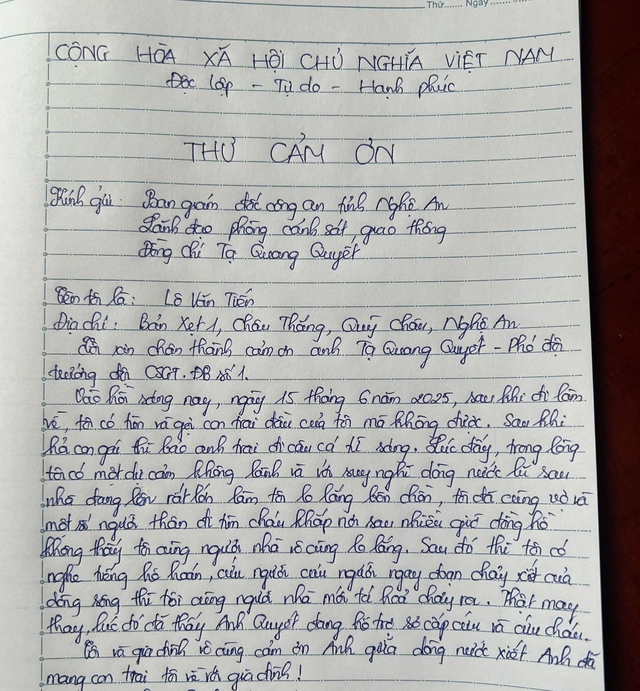 Thứ...... Ngày ......
CỘNG HÒA XÃ HỘI CHỦ NGHĨA VIỆT NAM
Độc lập - Tự do - Hạnh phúc
THƯ CẢM ƠN
Kính gửi: Ban giám đốc công an tỉnh Nghệ An
Lãnh đạo phòng cảnh sát giao thông
Đồng chí Tạ Quang Quyết
Tên tôi là: Lô Văn Tiến
Địa chỉ: Bản Xẹt 1, Châu Thắng, Quỳ Châu, Nghệ An
Tôi xin chân thành cảm ơn anh Tạ Quang Quyết - Phó đội
trưởng đội CSGT. ĐB số 1.
Vào hồi sáng nay, ngày 15 tháng 6 năm 2025, sau khi đi làm
về, tôi có tìm và gọi con trai đầu của tôi mà không được. Sau khi
hỏi con gái thì bảo anh trai đi câu cá từ sáng. Lúc đấy, trong lòng
tôi có một dự cảm không lành và với suy nghĩ dòng nước lũ sau
nhà đang lên rất lớn làm tôi lo lắng bồn chồn, tôi đã cùng vợ và
một số người thân đi tìm cháu khắp nơi sau nhiều giờ đồng hồ
không thấy tôi cùng người nhà vô cùng lo lắng. Sau đó thì tôi có
nghe tiếng hô hoán, cứu người cứu người ngay đoạn chảy xiết của
dòng sông thì tôi cùng người nhà mới tá hoả chạy ra. Thật may
thay, lúc đó đã thấy Anh Quyết đang hỗ trợ sơ cấp cứu và cứu cháu.
Tôi và gia đình vô cùng cảm ơn Anh giữa dòng nước xiết Anh đã
mang con trai tôi về với gia đình!